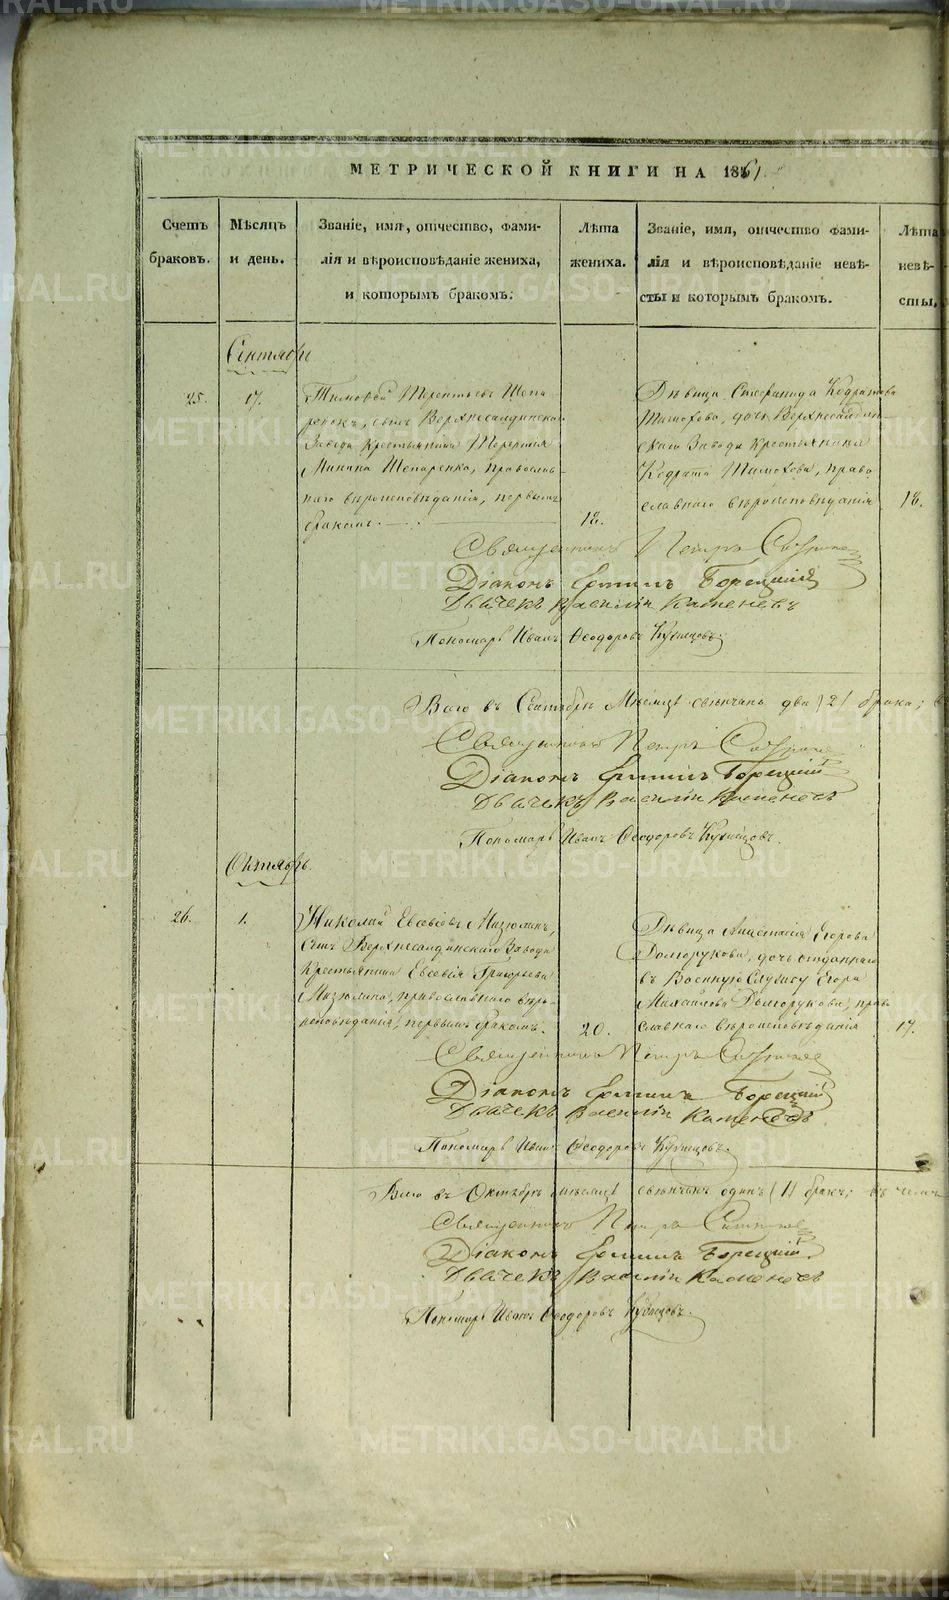 МЕТРИЧЕСКОЙ КНИГИ НА 1861
Счетъ браковъ.
Мѣсяцъ и день.
Званіе, имя, отчество, фами-
лія и вѣроисповѣданіе жениха,
и которымъ бракомъ.
Лѣта
жениха.
Званіе, имя, отчество фами-
лія и вѣроисповѣданіе невѣ-
сты и которымъ бракомъ.
Лѣта
невѣ-
сты.
Сентябрь
25.
17.
Тимофей Терентьевъ Шепа
ренокъ, сынъ Верхнесалдинскаго
Завода Крестьянина Терентья
Минина Шепаренка, православ-
наго вѣроисповѣданія, первымъ
бракомъ.
18.
Дѣвица Стефанида Кодратова
дочь Верхнесалдин-
скаго Завода Крестьянина
Кодрата право
славнаго вѣроисповѣданія
18.
Священникъ Петръ
Діаконъ Ермилъ Борецкій
Дьячекъ Василій Каменевъ
Пономарь Иванъ Ѳеодоровъ Кузнецовъ.
Всего въ Сентябрѣ Мѣсяцѣ свѣнчано два (2) брака;
Священникъ Петръ
Діаконъ Ермилъ Борецкій
Дьячекъ Василій Каменевъ
Пономарь Иванъ Ѳеодоровъ Кузнецовъ.
Октябрь.
26.
1.
Николай Евсевіевъ Мизюлинъ,
сынъ Верхнесалдинскаго Завода
Крестьянина Евсевія Григорьева
Мизюлина, православнаго вѣро
исповѣданія, первымъ бракомъ.
20.
Дѣвица Анастасія Егорова
Долгорукова, дочь отданнаго
въ Военную Службу Егора
Михайлова Долгорукова, право
славнаго вѣроисповѣданія
17.
Священникъ Петръ
Діаконъ Ермилъ Борецкій
Дьячекъ Василій Каменевъ
Пономарь Иванъ Ѳеодоровъ Кузнецовъ.
Всего въ Октябрѣ мѣсяцѣ свѣнчанъ одинъ (1) бракъ; въ
Священникъ Петръ
Діаконъ Ермилъ Борецкій.
Дьячекъ Василій Каменевъ
Пономарь Иванъ Ѳеодоровъ Кузнецовъ.
METRIKI.GASO-URAL.RU